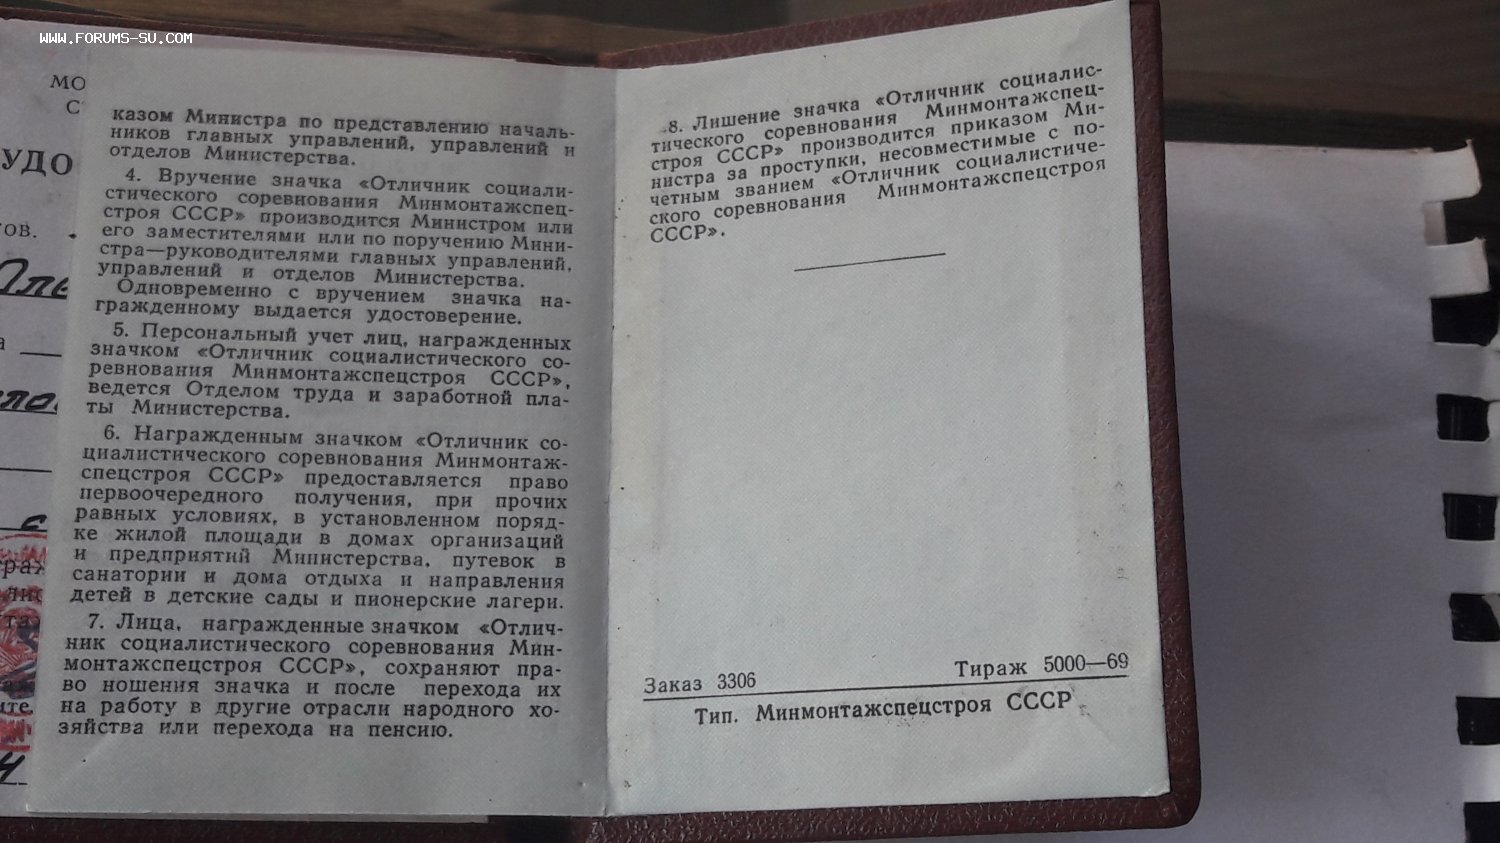 WWW.FORUMS-SU.COM
МО
УДО
ов.
казом Министра по представлению началь-
ников главных управлений, управлений и
отделов Министерства.
4. Вручение значка «Отличник социали-
стического соревнования Минмонтажспец-
строя СССР» производится Министром или
его заместителями или по поручению Мини-
стра—руководителями главных управлений,
управлений и отделов Министерства.
Одновременно с вручением значка на-
гражденному выдается удостоверение.
5. Персональный учет лиц, награжденных
значком «Отличник социалистического со-
ревнования Минмонтажспецстроя СССР»,
ведется Отделом труда и заработной пла-
ты Министерства.
6. Награжденным значком «Отличник со-
циалистического соревнования Минмонтаж-
спецстроя СССР» предоставляется право
первоочередного получения, при прочих
равных условиях, в установленном поряд-
ке жилой площади в домах организаций
и предприятий Министерства, путевок в
санатории и дома отдыха и направления
детей в детские сады и пионерские лагери.
7. Лица, награжденные значком «Отлич-
ник социалистического соревнования Мин-
монтажспецстроя СССР», сохраняют пра-
во ношения значка и после перехода их
на работу в другие отрасли народного хо-
зяйства или перехода на пенсию.
8. Лишение значка «Отличник социалис-
тического соревнования Минмонтажспец-
строя СССР» производится приказом Ми-
нистра за проступки, несовместимые с по-
четным званием «Отличник социалистиче-
ского соревнования Минмонтажспецстроя
СССР».
Заказ 3306 Тираж 5000—69
Тип. Минмонтажспецстроя СССР